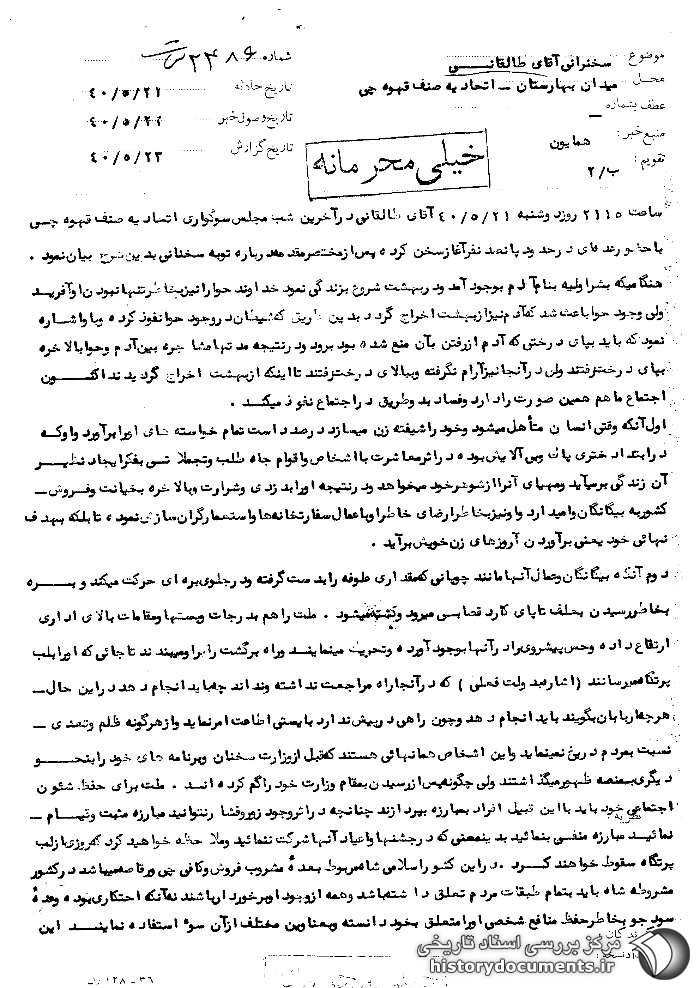 موضوع سخنرانی آقای طالقانی
محل میدان بهارستان - اتحادیه صنف قهوه چی
عطف بشماره -
منبع خبر: همایون
تقویم: ب/۲
شماره ۲۳۸۶
تاریخ حادثه ۴۰/۵/۲۱
تاریخ وصول خبر ۴۰/۵/۲۲
تاریخ گزارش ۴۰/۵/۲۳
خیلی محرمانه
ساعت ۲۱۱۵ روز دوشنبه ۴۰/۵/۲۱ آقای طالقانی در آخرین شب مجلس سوگواری اتحادیه صنف قهوه چی
با حضور عده‌ای در حدود پانصد نفر آغاز سخن کرده پس از مختصر مقدمه درباره توبه سخنانی بدین شرح بیان نمود .
هنگامیکه بشر اولیه بنام آدم بوجود آمد و در بهشت شروع بزندگی نمود خداوند حوا را نیز بخاطر تنها نبودن او آفرید
ولی وجود حوا باعث شد که آدم نیز از بهشت اخراج گردد بدین طریق که شیطان در وجود حوا نفوذ کرده و با و اشاره
نمود که باید بپای درختی که آدم از رفتن بآن منع شده بود برود و در نتیجه مدتها مشاجره بین آدم و حوا بالاخره
بپای درخت رفتند ولی در آنجا نیز آرام نگرفته و ببالای درخت رفتند تا اینکه از بهشت اخراج گردیدند اکنون
اجتماع ما هم همین صورت را دارد و فساد بدو طریق در اجتماع نفوذ میکند .
اول آنکه وقتی انسان متأهل میشود و خود را شیفته زن میسازد درصدد است تمام خواسته های او را برآورد و او که
در ابتدا دختری پاک و بی آلایش بوده در اثر معاشرت با اشخاص و اقوام جاه طلب و تجملاتی بفکر ایجاد نظیر
آن زندگی برمیآید و مهیای آنرا از شوهر خود میخواهد و در نتیجه او را بدزدی و شرارت و بالاخره بخیانت و فروش
کشور به بیگانگان وامیدارد و او نیز بخاطر ارضای خاطر او با عمال سفارتخانه‌ها و استعمارگران سازش نموده تا بلکه بهدف
نهائی خود یعنی برآوردن آرزوهای زن خویش برآید .
دوم آنکه بیگانگان و عمال آنها مانند چوپانی که مقداری علوفه را بدست گرفته و در جلوی بره‌ای حرکت میکند و بره
بخاطر رسیدن بعلف تا پای کارد قصابی میرود و کشته میشود . ملت را هم بدرجات و پستها و مقامات بالای اداری
ارتقاء داده و حس پیشروی را در آنها بوجود آورده و تحریک مینمایند و راه برگشت را بر او میبندند تا جائی که او را بلب
پرتگاه میرسانند ( اشاره بدولت فعلی ) که در آنجا راه مراجعت نداشته و نداند چه باید انجام دهد در این حال
هر چه اربابان بگویند باید انجام دهد و چون راهی در پیش ندارد بایستی اطاعت امر نماید و از هرگونه ظلم و تعدی
نسبت بمردم دریغ نمینماید و این اشخاص همانهائی هستند که قبل از وزارت سخنان و برنامه های خود را بنحو
دیگری بمنصه ظهور میگذاشتند ولی چگونه پس از رسیدن بمقام وزارت خود را گم کرده اند . ملت برای حفظ شئون
اجتماعی خود باید با این قبیل افراد بمبارزه بپردازند چنانچه در اثر وجود زور و فشار نتوانید مبارزه مثبت و قیام
نمائید مبارزه منفی بنمائید بدینمعنی که در جشنها و اعیاد آنها شرکت ننمائید و ملاحظه خواهید کرد که روزی از لب
پرتگاه سقوط خواهند کرد . در این کشور اسلامی شاه مربوط بعدهٔ مشروب فروش و کافی چی و رقاصه میباشد در کشور
مشروطه شاه باید بتمام طبقات مردم تعلق داشته باشد و همه از وجود او برخوردار باشند نه آنکه احتکاری بوده و عدهٔ
سودجو بخاطر حفظ منافع شخصی او را متعلق بخود دانسته و بعناوین مختلف از آن سوء استفاده نمایند این
مرکز بررسی اسناد تاریخی
historydocuments.ir